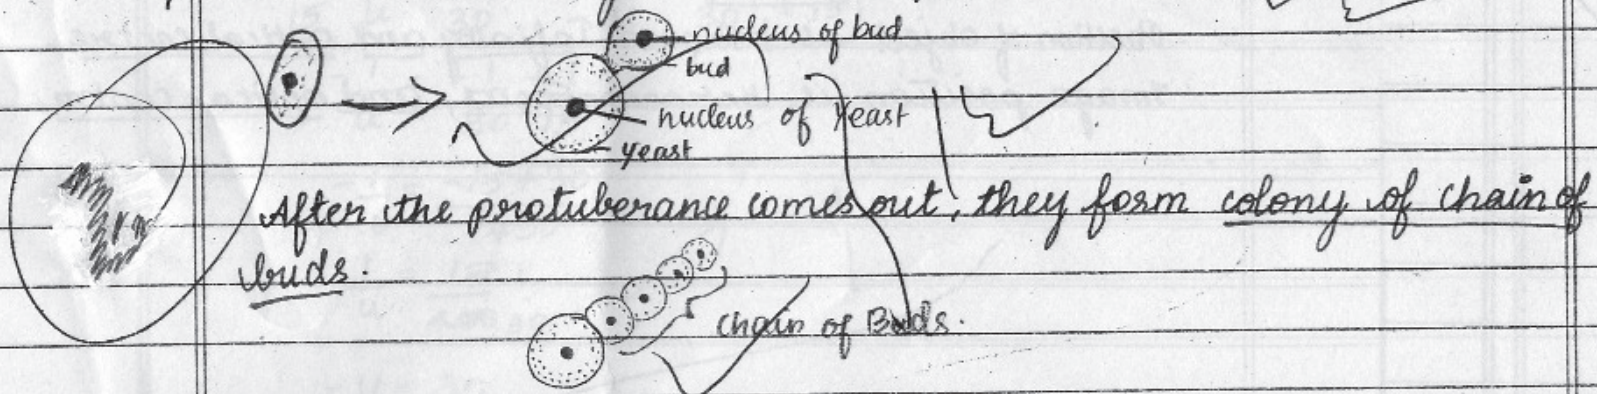 nucleus of bud
bud
nucleus of Yeast
yeast
After the protuberance comes out, they form colony of chain of
buds.
Chain of Buds.